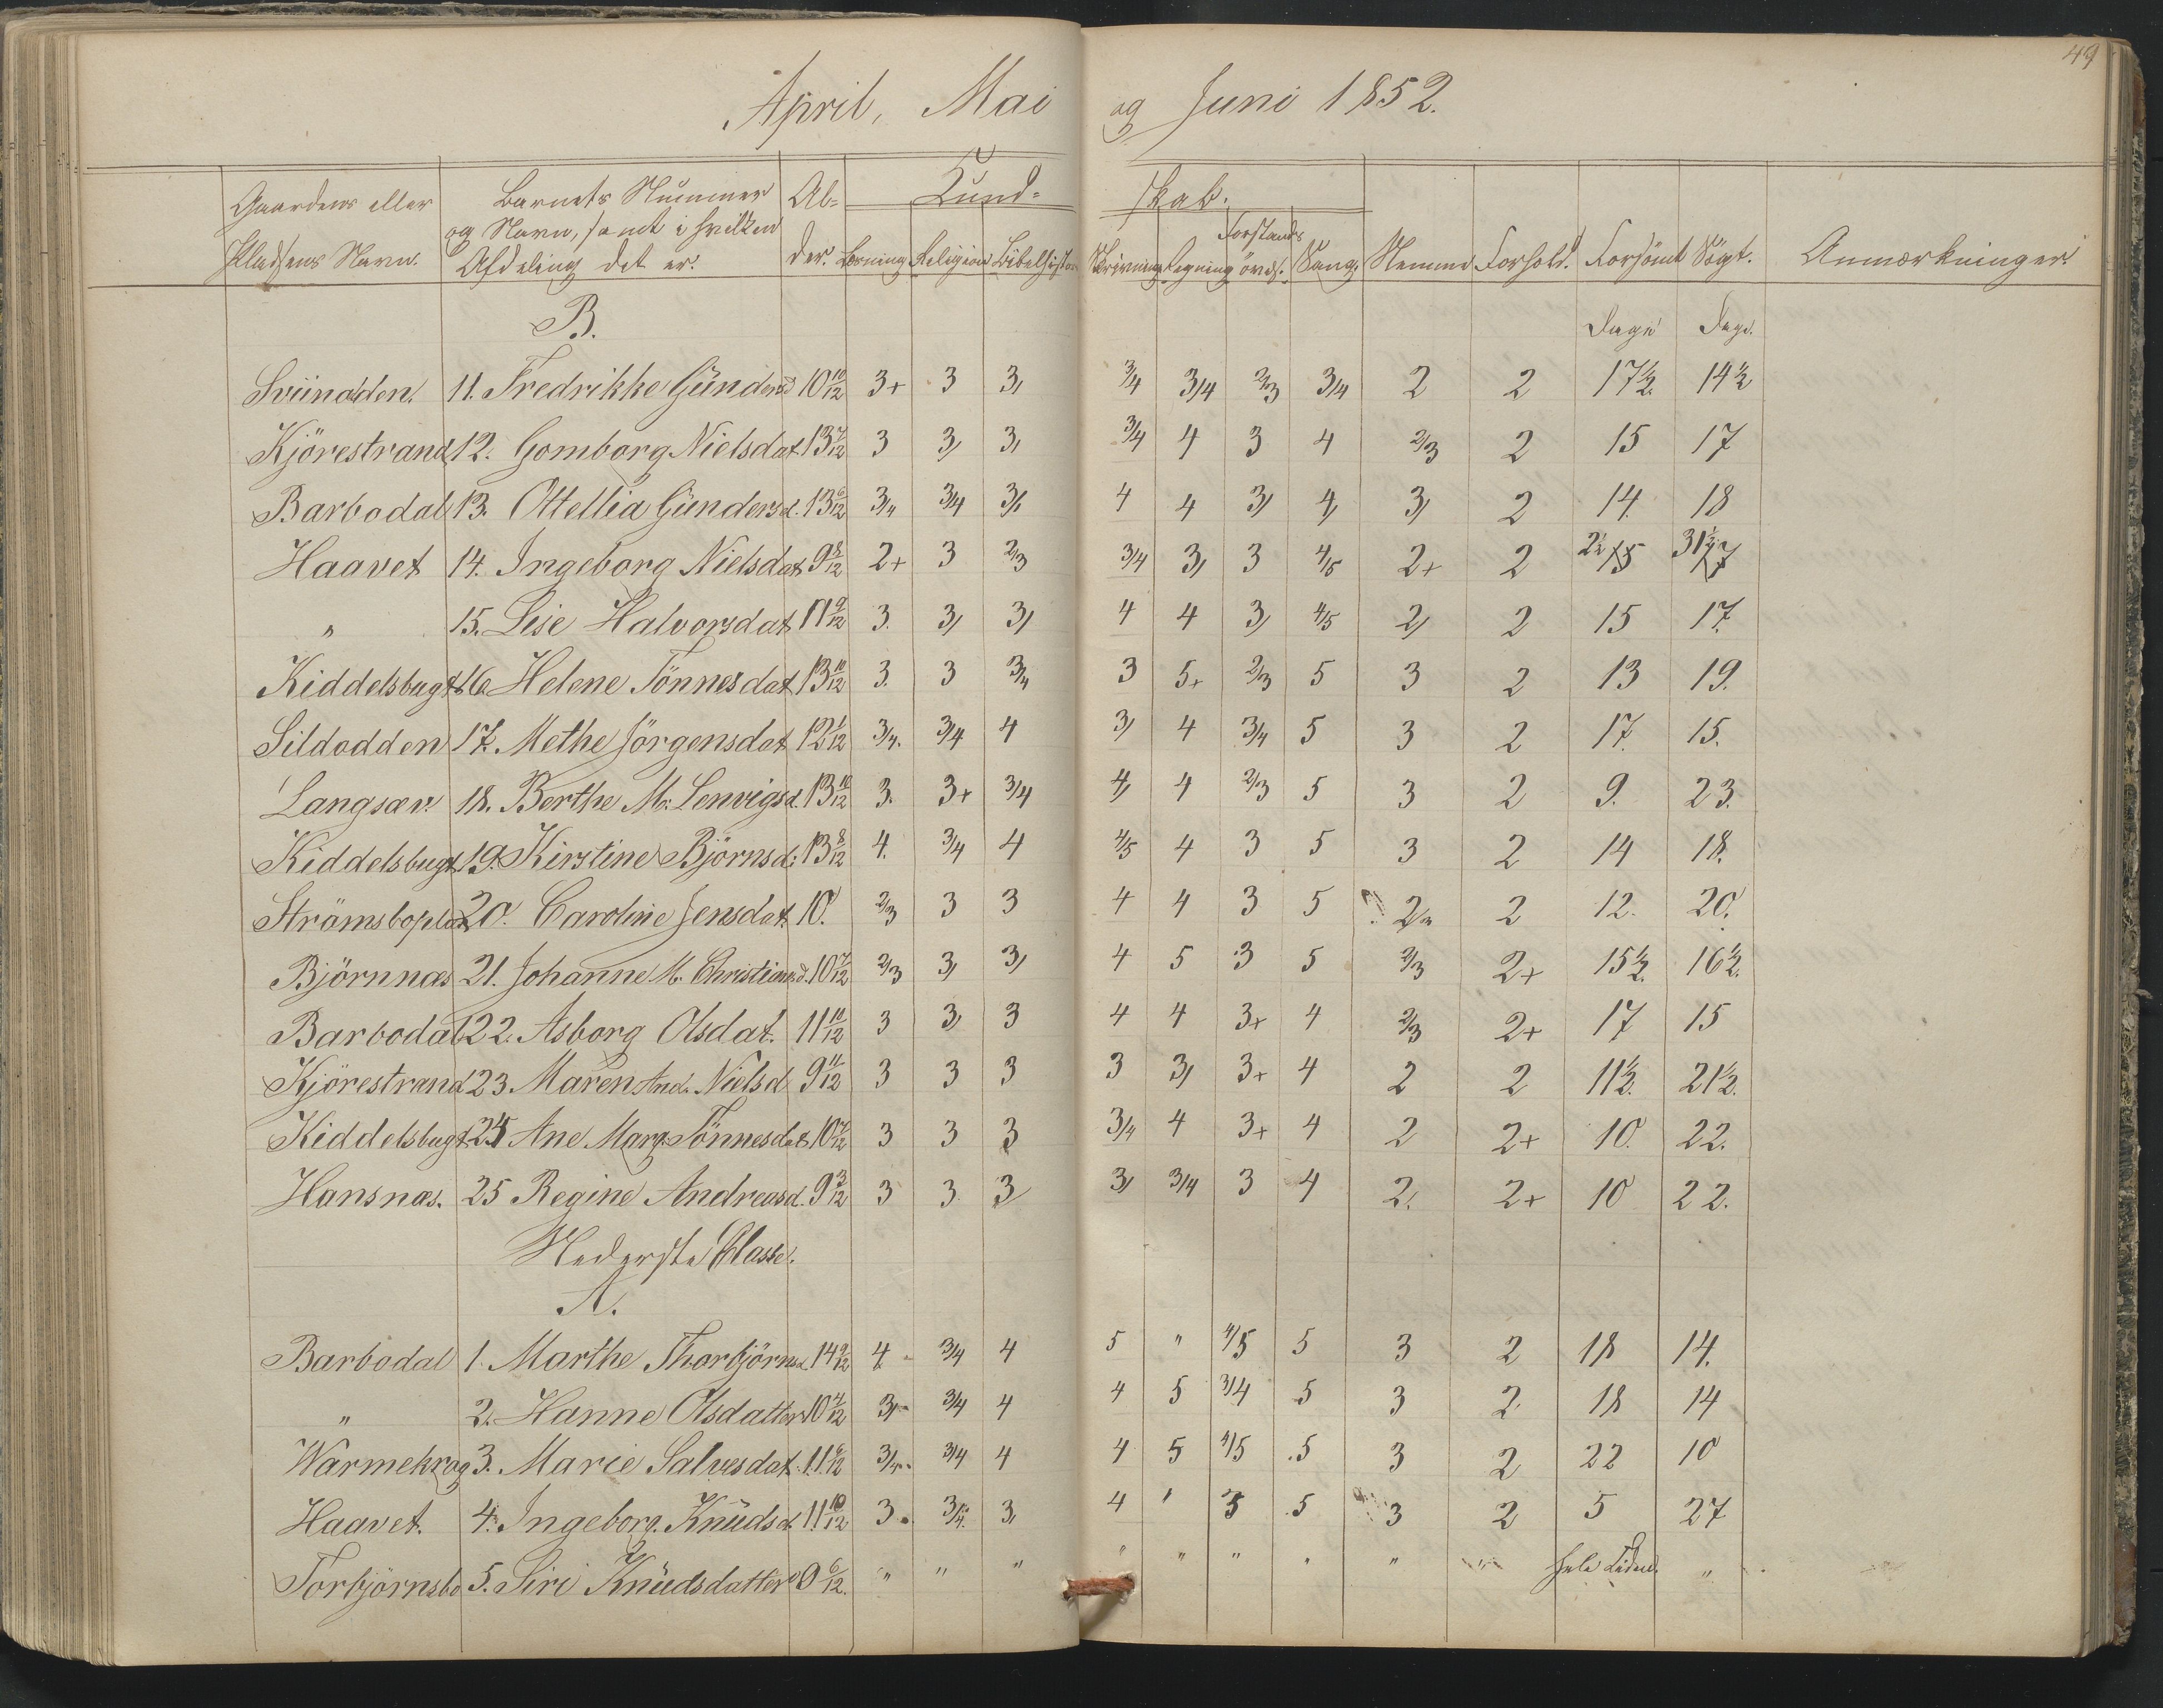 49
April, Mai og Juni 1852.
Gaardens eller Pladsens Navn. Barnets Nummer og Navn, samt i hvilken Afdeling det er. Al- der. Kund- skab. Læsning Religion Bibelhistorie Skrivning Regning Forstands övels. Sang. Nemme Forhold. Forsömt Sögt. Anmærkninger.
B. Dage Dage.
Sviinodden. 11. Fredrikke Gündersd 10 10/12 3+ 3 3, 3/4 3/4 2/3 3/4 2 2 17½ 14½
Kjörestrand 12. Gomborg Nielsdat 13 7/12 3 3, 3, 3/4 4 3 4 2/3 2 15 17
Barbodal 13. Ottellia Gündersd. 13 6/12 3/4 3/4 3, 4 4 3, 4, 3, 2 14 18
Haavet 14. Ingeborg Nielsdat 9 8/12 2+ 3 2/3 3/4 3, 3 4/5 2+ 2 2½ 15 31½ 17
" 15. Lise Halvorsdat 11 9/12 3. 3, 3, 4 4 3, 4/5 2, 2 15 17.
Kiddelsbugt 16. Helene Tönnesdat 13 10/12 3. 3 3/4 3 5+ 2/3 5 3 2 13 19.
Sildodden 17. Methe Jörgensdat 12 1/12 3/4. 3/4 4 3, 4 3/4 5 3 2 17. 15.
Langsæv. 18. Berthe M. Lenvigsd. 13 10/12 3. 3+ 3/4 4, 4 2/3 5 3 2 9. 23.
Kiddelsbugt 19. Kirstine Björnsd: 13 8/12 4. 3/4 4 4/5 4 3 5 3 2 14 18.
Strömsboplads 20. Caroline Jensdat. 10. 2/3 3 3 4 4 3 5 2 2 12. 20.
Björnnæs 21. Johanne M. Christiansd. 10 7/12 2/3 3, 3, 4 5 3 5 2/3 2+ 15½ 16½.
Barbodal 22. Asborg Olsdat. 11 10/12 3 3, 3 4 4 3+ 4 2/3 2+ 17 15
Kjörestrand 23. Maren And. Nielsd 9 11/12 3 3 3 3 3, 3+ 4 2 2 11½ 21½.
Kiddelsbugt 24 Ane Marg. Tönnesdat 10 7/12 3 3 3 3/4 4 3+ 4 2 2+ 10. 22.
Hansnæs. 25 Regine Andreasd. 9 3/12 3 3 3 3, 3/4 3 4 2. 2+ 10 22.
Nederste Classe.
A.
Barbodal 1. Marthe Thorbjörnsd. 14 9/12 4 3/4 4 5 " 4/5 5 3 2 18 14.
" 2. Hanne Olsdatter 10 4/12 3, 3/4 4 4 5 3/4 5 3 2 18 14
Warmekrog 3. Marie Salvesdat. 11 6/12 3/4. 3/4 4 4 5 4/5 5 3 2 22 10
Haavet. 4. Ingeborg. Knüdsd. 11 10/12 3. 3/4. 3, 4 " 3 5 3 2 5 27
Torbjörnsbo 5. Siri Knüdsdatter 0 6/12. " " " " " " " " " hele Tiden. "